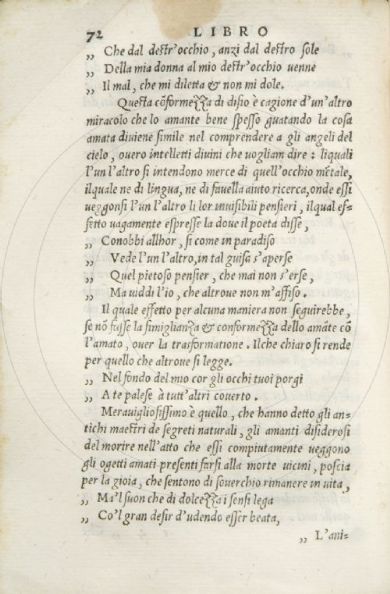 72 LIBRO
„ Che dal destr'occhio, anzi dal destro sole
„ Della mia donna al mio destr'occhio uenne
„ Il mal, che mi diletta & non mi dole.
Questa cōformezza di disio è cagione d'un'altro
miracolo che lo amante bene spesso guatando la cosa
amata diuiene simile nel comprendere a gli angeli del
cielo, ouero intelletti diuini che vogliam dire : liquali
l'un l'altro si intendono merce di quell'occhio mētale,
ilquale ne di lingua, ne di fauella aiuto ricerca, onde essi
ueggonsi l'un l'altro li lor inuisibili pensieri, ilqual ef-
fetto uagamente espresse la doue il poeta disse,
„ Conobbi allhor, si come in paradiso
„ Vede l'un l'altro, in tal guisa s'aperse
„ Quel pietoso pensier, che mai non s'erse,
„ Ma uiddil'io, che altroue non m'affiso.
Il quale effetto per alcuna maniera non seguirebbe,
se nō fusse la simiglianza & conformezza dello amāte cō
l'amato, ouer la trasformatione. Ilche chiaro si rende
per quello che altroue si legge.
„ Nel fondo del mio cor gli occhi tuoi porgi
„ A te palese à tutt'altri couerto.
Merauigliosissimo è quello, che hanno detto gli an-
tichi maestri de segreti naturali, gli amanti disiderosi
del morire nell'atto che essi compiutamente ueggono
gli ogetti amati presenti farsi alla morte uicini, poscia
per la gioia, che sentono di souerchio rimanere in uita,
„ Ma'l suon che di dolcezza i sensi lega
„ Co'l gran desir d'udendo esser beata,
„ L'ani-